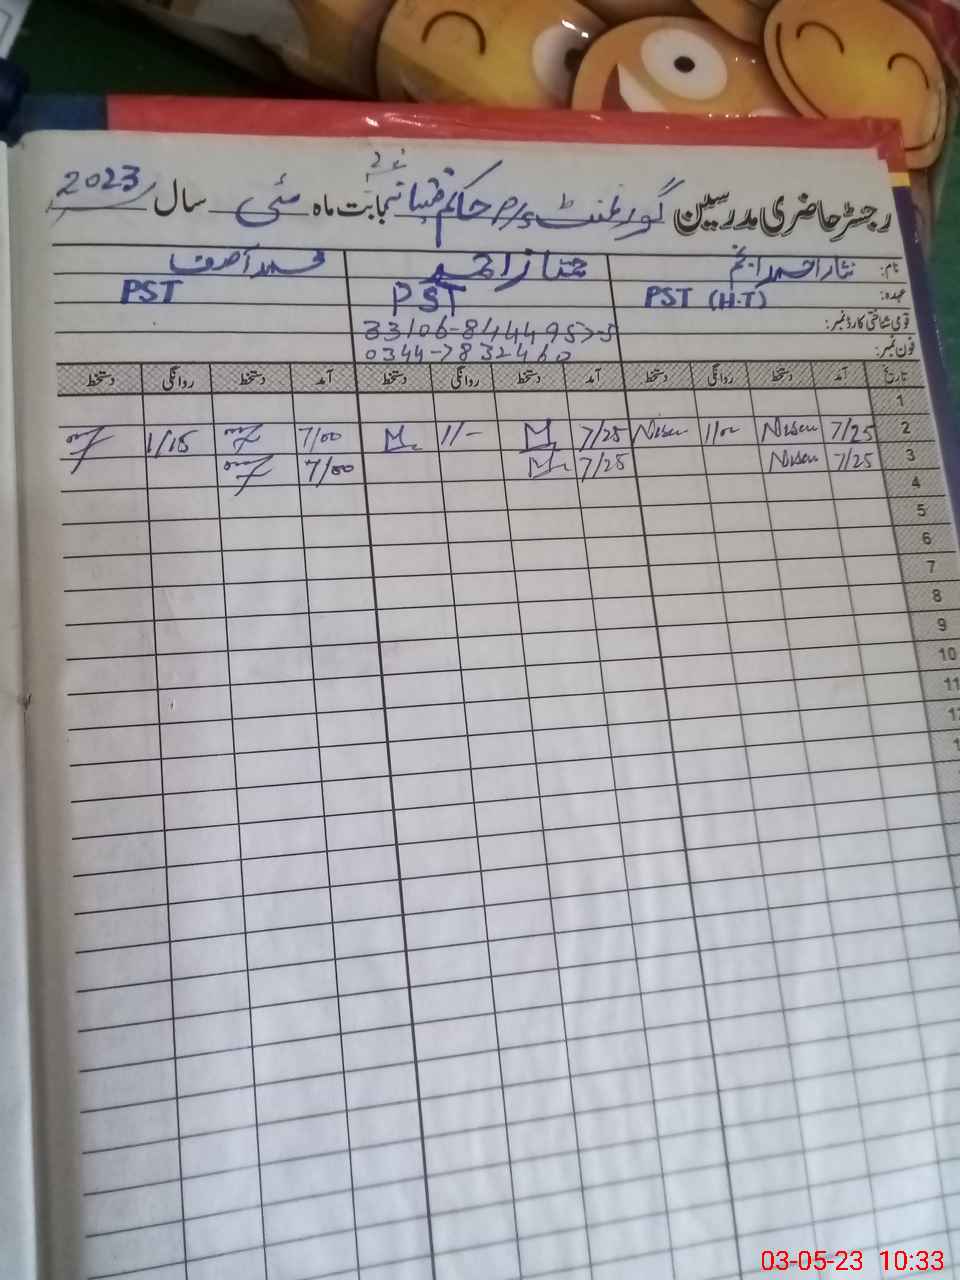 رجسٹر حاضری مدرسین گورنمنٹ P/S حاکم بابت ماہ مئی سال 2023
نام: نثار احمد انجم ممتاز احمد محمد آصف
عہدہ: PST (H.T) PST PST
قومی شناختی کارڈ نمبر: 33106-8444957-5
فون نمبر: 0344-7832460
تاریخ آمد دستخط روانگی دستخط آمد دستخط روانگی دستخط آمد دستخط روانگی دستخط
1
2 7/25 Nisar 1/00 Nisar 7/25 M 1/- M 7/00 1/15
3 7/25 Nisar 7/25 M 7/00
4
5
6
7
8
9
10
11
03-05-23 10:33